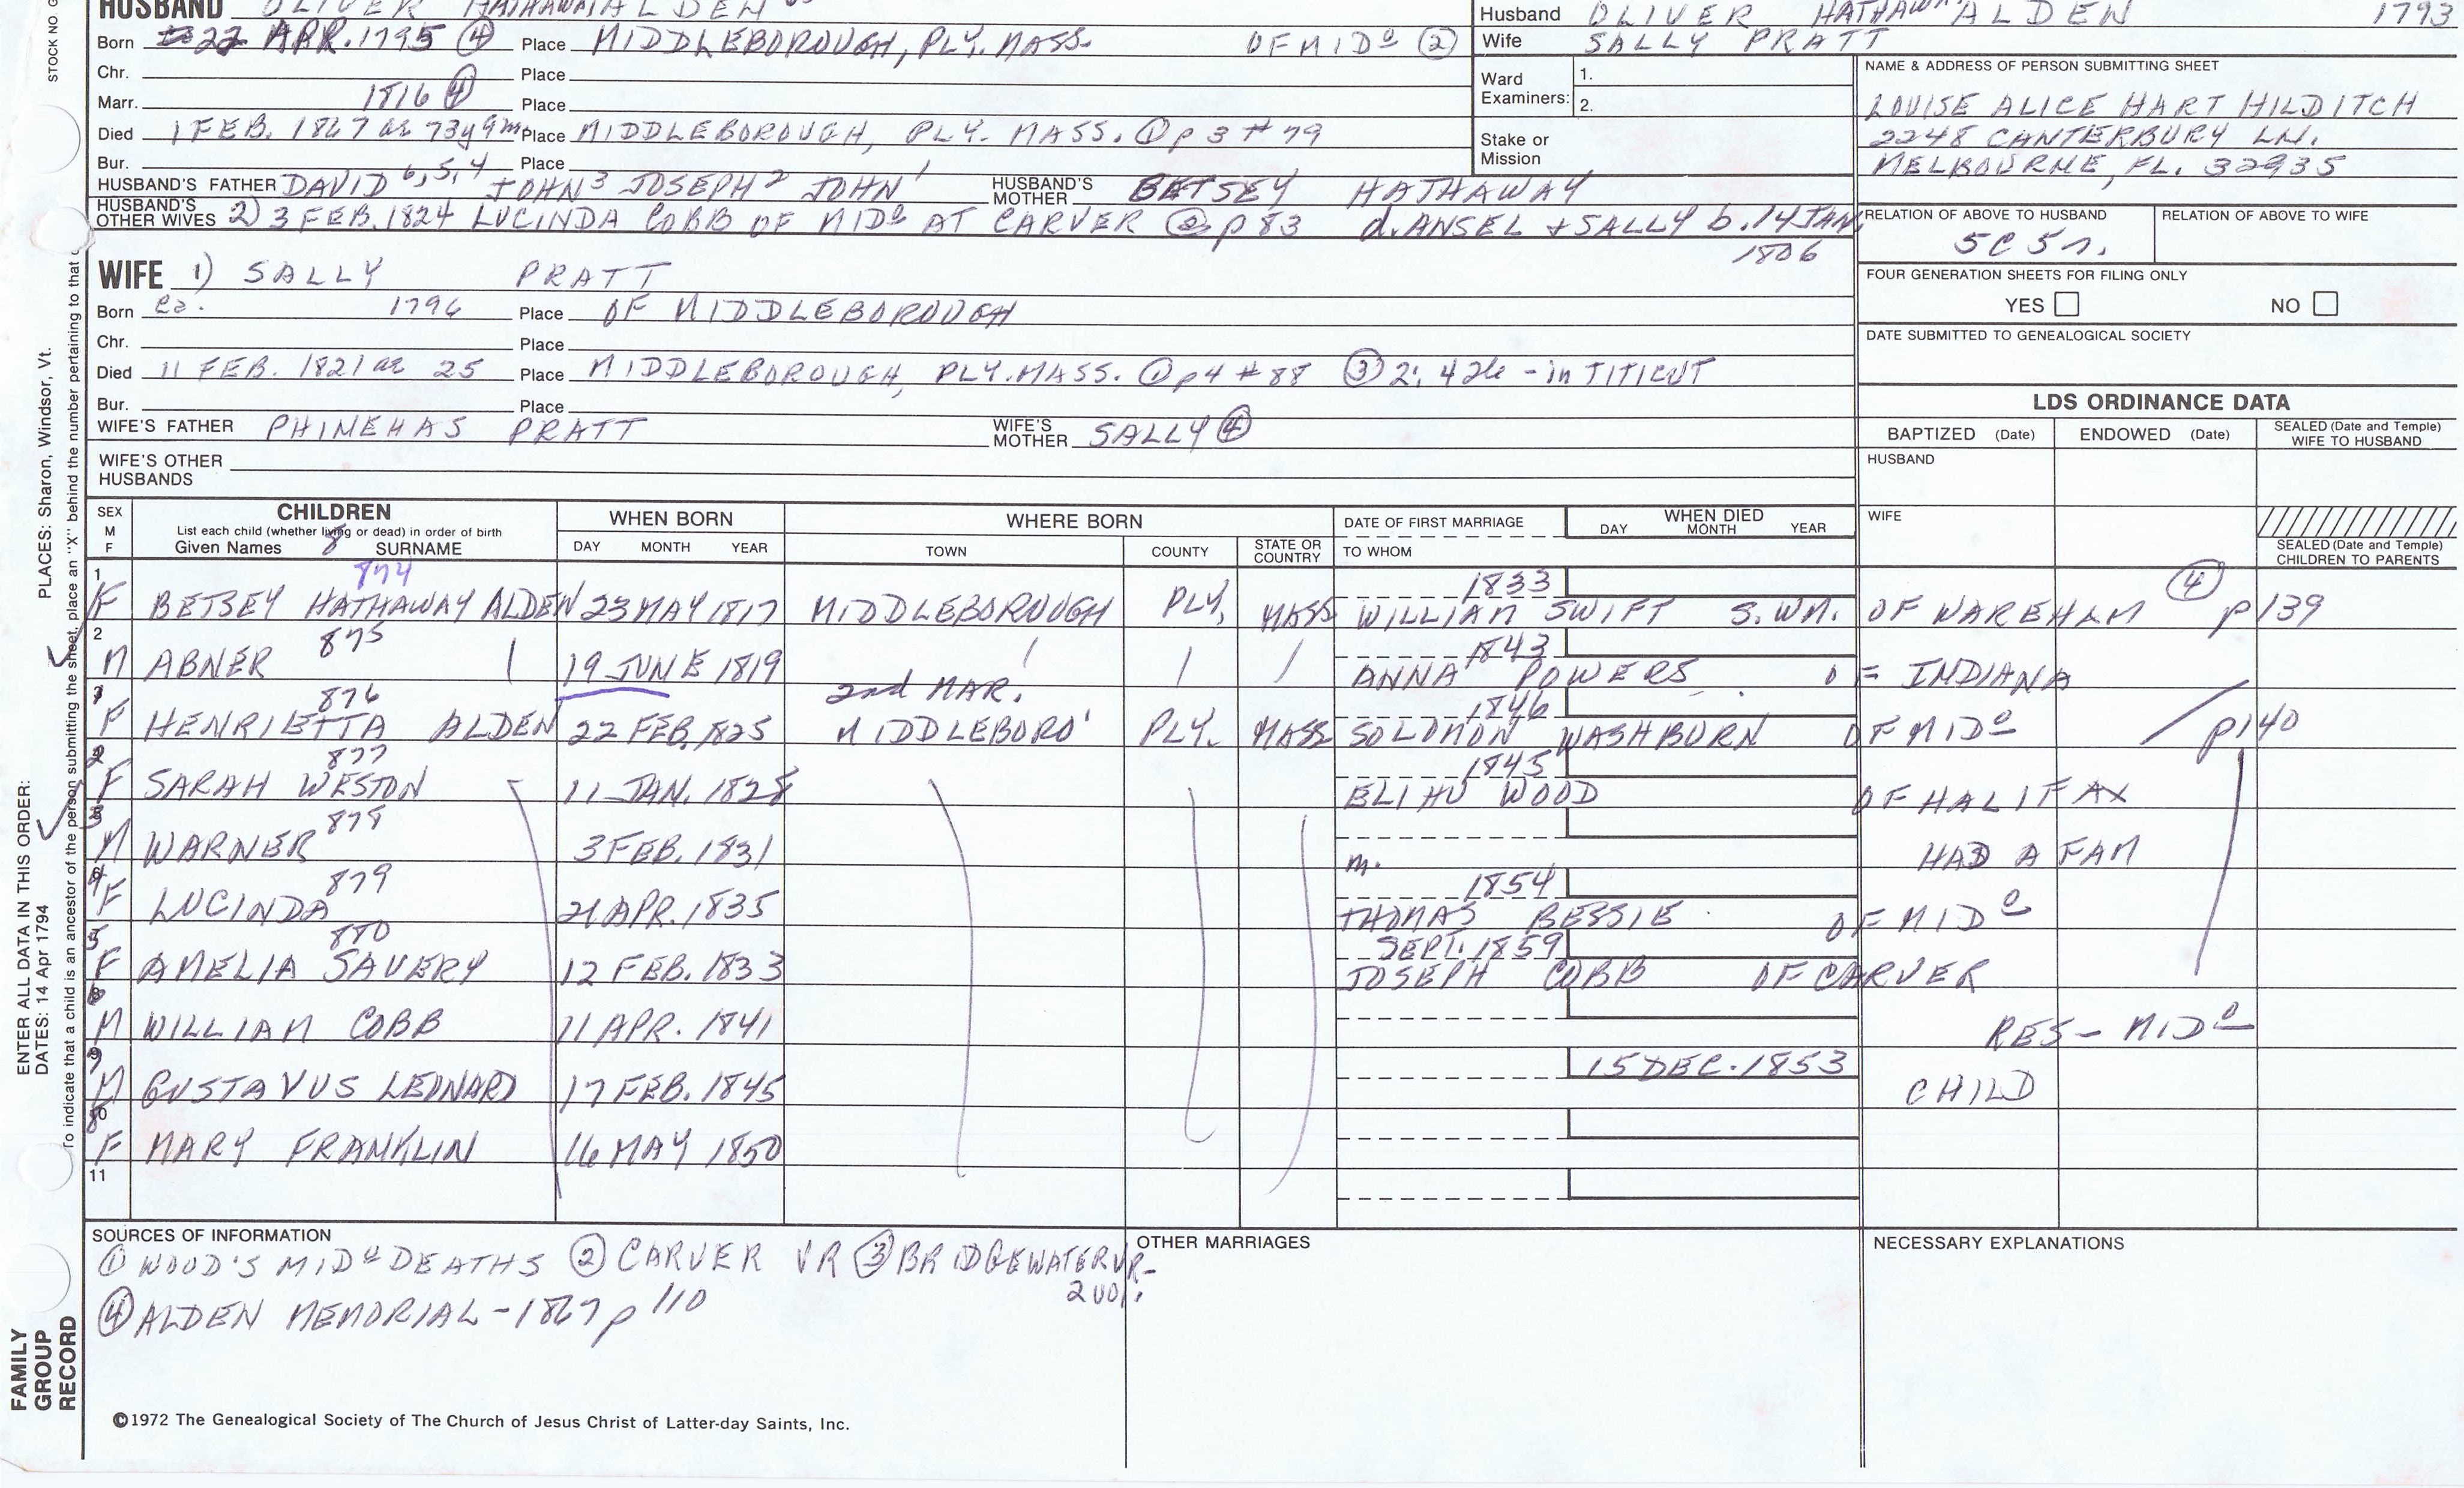 HUSBAND OLIVER HATHAWAY ALDEN
Husband OLIVER HATHAWAY ALDEN 1793
Born 22 APR. 1795 ④ Place MIDDLEBOROUGH, PLY. MASS. OF MIDº ②
Wife SALLY PRATT
Chr. Place
Marr. 1816 ④ Place
Died 1 FEB. 1867 ae 73y9m Place MIDDLEBOROUGH, PLY. MASS. ① p 3 # 79
Bur. Place
Ward Examiners: 1. 2.
Stake or Mission
NAME & ADDRESS OF PERSON SUBMITTING SHEET
LOUISE ALICE HART HILDITCH
2248 CANTERBURY LN.
MELBOURNE, FL. 32935
HUSBAND'S FATHER DAVID 6,5,4 JOHN 3 JOSEPH 2 JOHN 1 HUSBAND'S MOTHER BETSEY HATHAWAY
HUSBAND'S OTHER WIVES 2) 3 FEB. 1824 LUCINDA COBB OF MIDº AT CARVER ② p 83 d. ANSEL + SALLY b. 14 JAN
1806
RELATION OF ABOVE TO HUSBAND RELATION OF ABOVE TO WIFE
5C 5r.
FOUR GENERATION SHEETS FOR FILING ONLY
YES NO
DATE SUBMITTED TO GENEALOGICAL SOCIETY
WIFE 1) SALLY PRATT
Born ca. 1796 Place OF MIDDLEBOROUGH
Chr. Place
Died 11 FEB. 1821 ae 25 Place MIDDLEBOROUGH, PLY. MASS. ① p4 # 88 ③ 2: 426 - in TITICUT
Bur. Place
WIFE'S FATHER PHINEHAS PRATT WIFE'S MOTHER SALLY ④
WIFE'S OTHER HUSBANDS
LDS ORDINANCE DATA
BAPTIZED (Date) ENDOWED (Date) SEALED (Date and Temple) WIFE TO HUSBAND
HUSBAND
WIFE
SEALED (Date and Temple) CHILDREN TO PARENTS
SEX M F
CHILDREN
List each child (whether living or dead) in order of birth
Given Names 8 SURNAME
WHEN BORN
DAY MONTH YEAR
WHERE BORN
TOWN COUNTY STATE OR COUNTRY
DATE OF FIRST MARRIAGE
TO WHOM
WHEN DIED
DAY MONTH YEAR
1 874 1833 ④
F BETSEY HATHAWAY ALDEN 23 MAY 1817 MIDDLEBOROUGH PLY. MASS WILLIAM SWIFT S. WM. OF WAREHAM p 139
2 875 1843
M ABNER 19 JUNE 1819 ANNA POWERS OF INDIANA
2nd MAR.
1 876 1846
F HENRIETTA ALDEN 22 FEB. 1825 MIDDLEBORO' PLY. MASS SOLOMON WASHBURN OF MIDº p140
2 877 1845
F SARAH WESTON 11 JAN. 1828 ELIHU WOOD OF HALIFAX
3 878
M WARNER 3 FEB. 1831 m. HAD A FAM
4 879 1854
F LUCINDA 21 APR. 1835 THOMAS BESSIE OF MIDº
5 880 SEPT. 1859
F AMELIA SAVERY 12 FEB. 1833 JOSEPH COBB OF CARVER
M WILLIAM COBB 11 APR. 1841 RES - MIDº
9 15 DEC. 1853
M GUSTAVUS LEONARD 17 FEB. 1845 CHILD
F MARY FRANKLIN 16 MAY 1850
11
SOURCES OF INFORMATION
① WOOD'S MIDº DEATHS ② CARVER VR ③ BRIDGEWATER VR-
2 vol.
④ ALDEN MEMORIAL - 1867 p 110
OTHER MARRIAGES
NECESSARY EXPLANATIONS
©1972 The Genealogical Society of The Church of Jesus Christ of Latter-day Saints, Inc.
STOCK NO G
PLACES: Sharon, Windsor, Vt.
ENTER ALL DATA IN THIS ORDER:
DATES: 14 Apr 1794
To indicate that a child is an ancestor of the person submitting the sheet, place an "X" behind the number pertaining to that
FAMILY GROUP RECORD